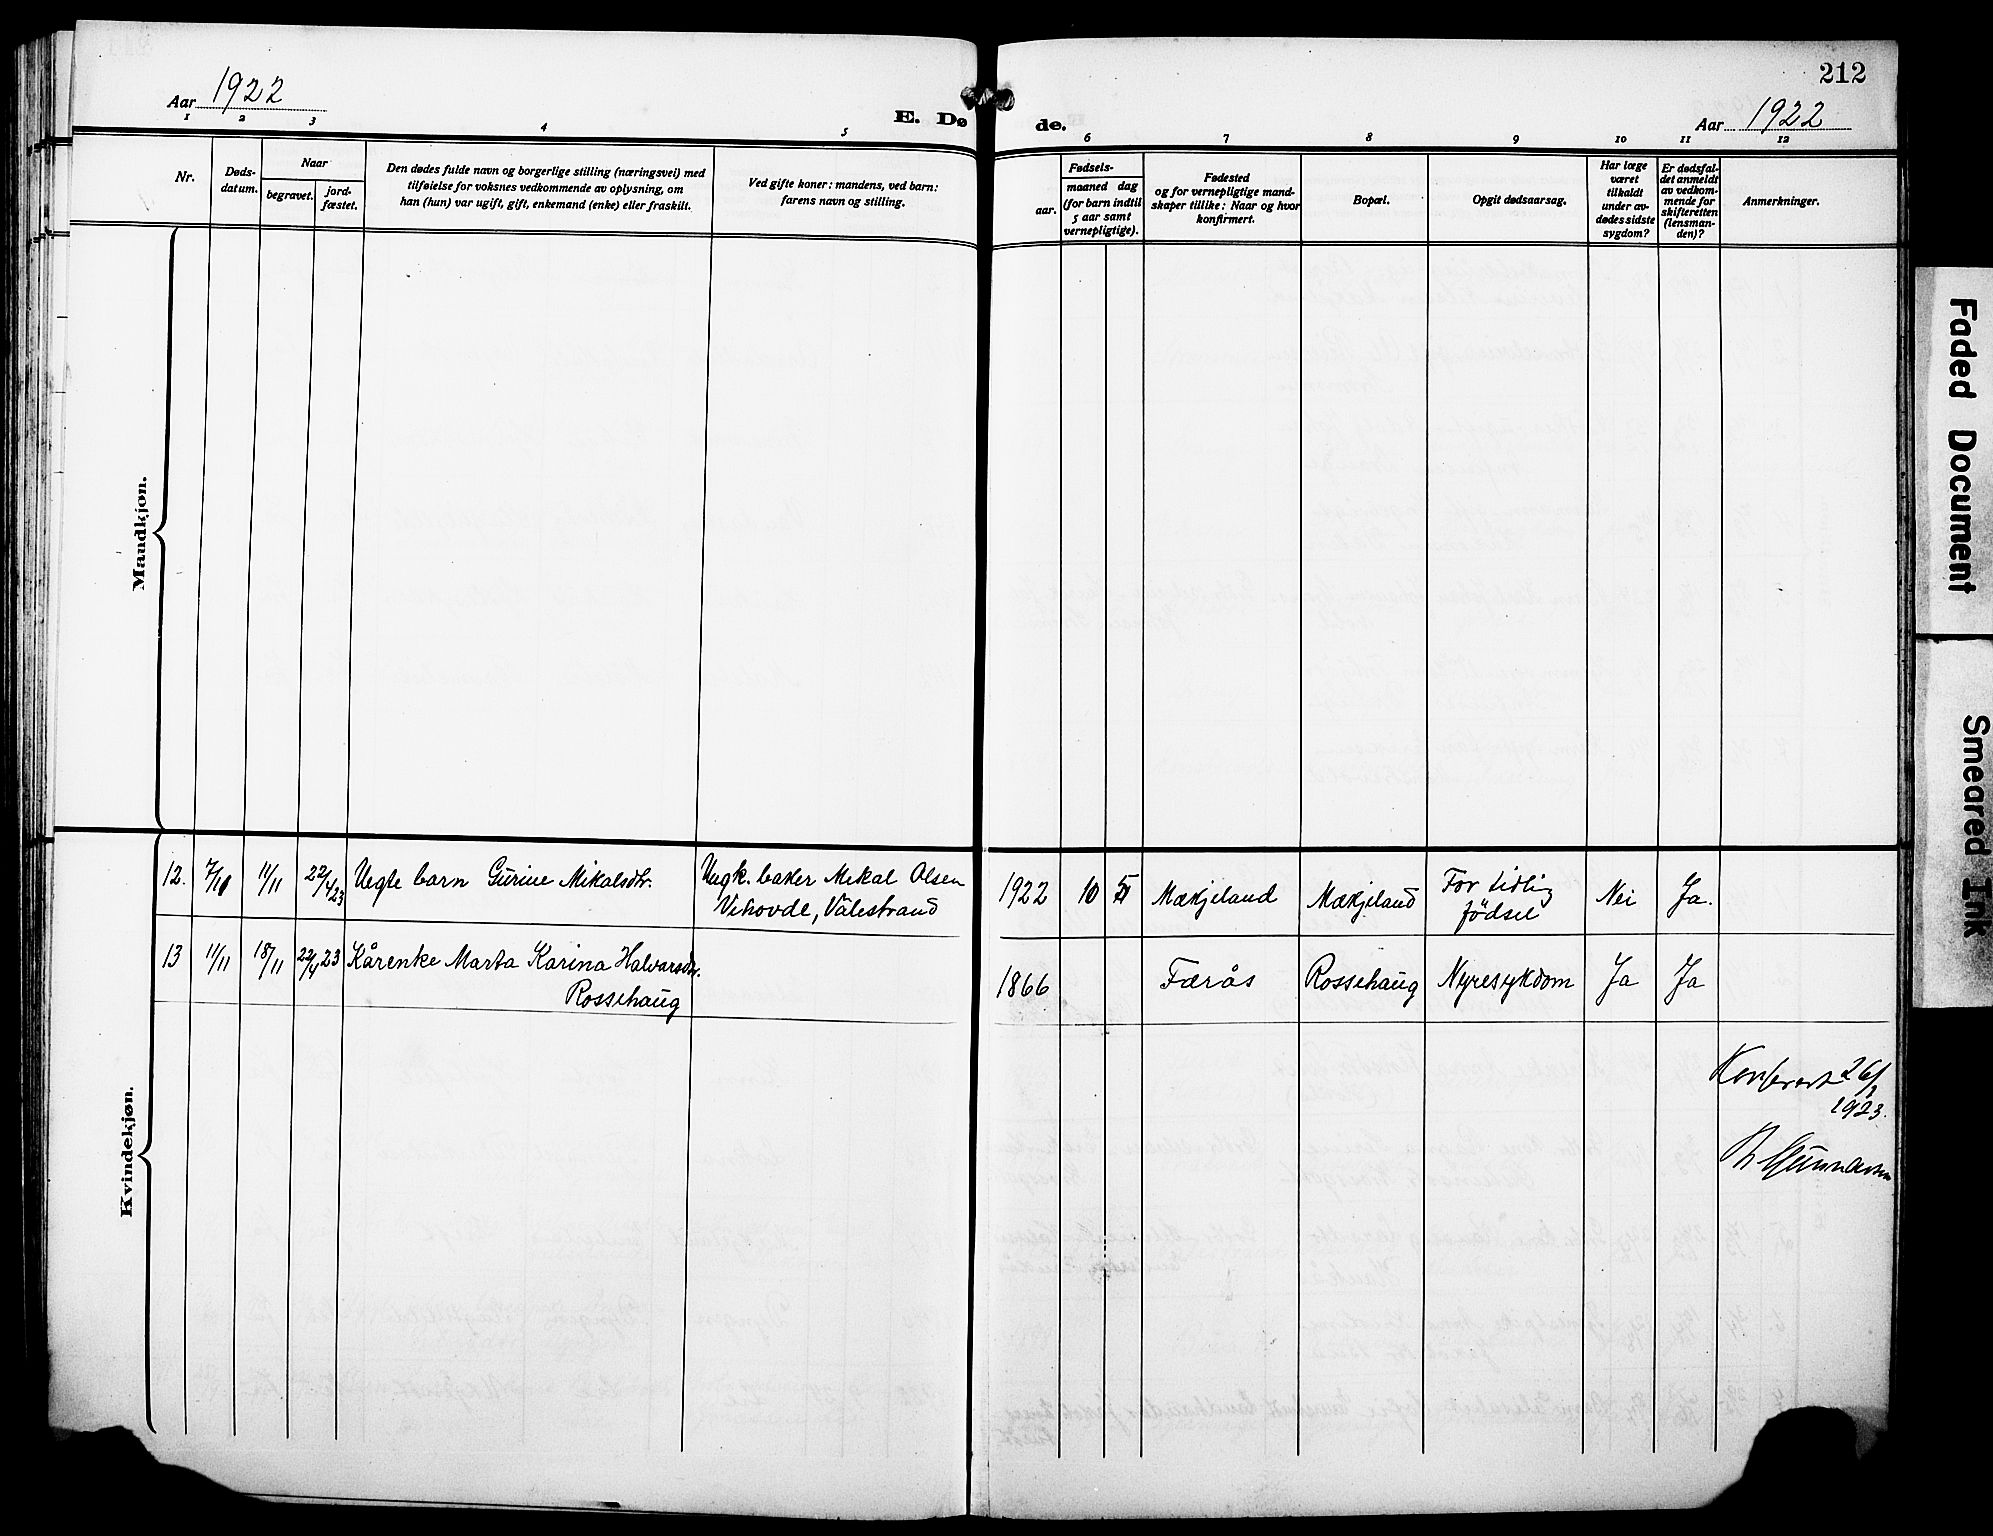 212
Aar 1922
E. Dø
de.
Aar 1922
1 2 3 4 5
6 7 8 9 10 11 12
Nr.
Døds-
datum.
Naar
begravet.
jord-
fæstet.
Den dødes fulde navn og borgerlige stilling (næringsvei) med
tilføielse for voksnes vedkommende av oplysning, om
han (hun) var ugift, gift, enkemand (enke) eller fraskilt.
Ved gifte koner: mandens, ved barn:
farens navn og stilling.
Fødsels-
aar.
maaned dag
(for barn indtil
5 aar samt
vernepligtige).
Fødested
og for vernepligtige mand-
skaper tillike: Naar og hvor
konfirmert.
Bopæl.
Opgit dødsaarsag.
Har læge
været
tilkaldt
under av-
dødes sidste
sygdom?
Er dødsfal-
det anmeldt
av vedkom-
mende for
skifteretten
(lensman-
den)?
Anmerkninger.
Mandkjøn.
Kvindekjøn.
12. 7/10 11/11 22/4 23 Uegte barn Gurine Mikalsdtr. Ungk. baker Mekal Olsen
Vihovde, Vålestrand
1922 10 5 Mækjeland Mækjeland For tidlig
fødsel Nei Ja.
13 11/11 18/11 22/4 23 Kårenke Marta Karina Halvarsdtr.
Rossehaug
1866 Færås Rossehaug Nyresykdom Ja Ja
Konferert 26/1
1923.
Gunnarsen
Faded Document
Smeared Ink